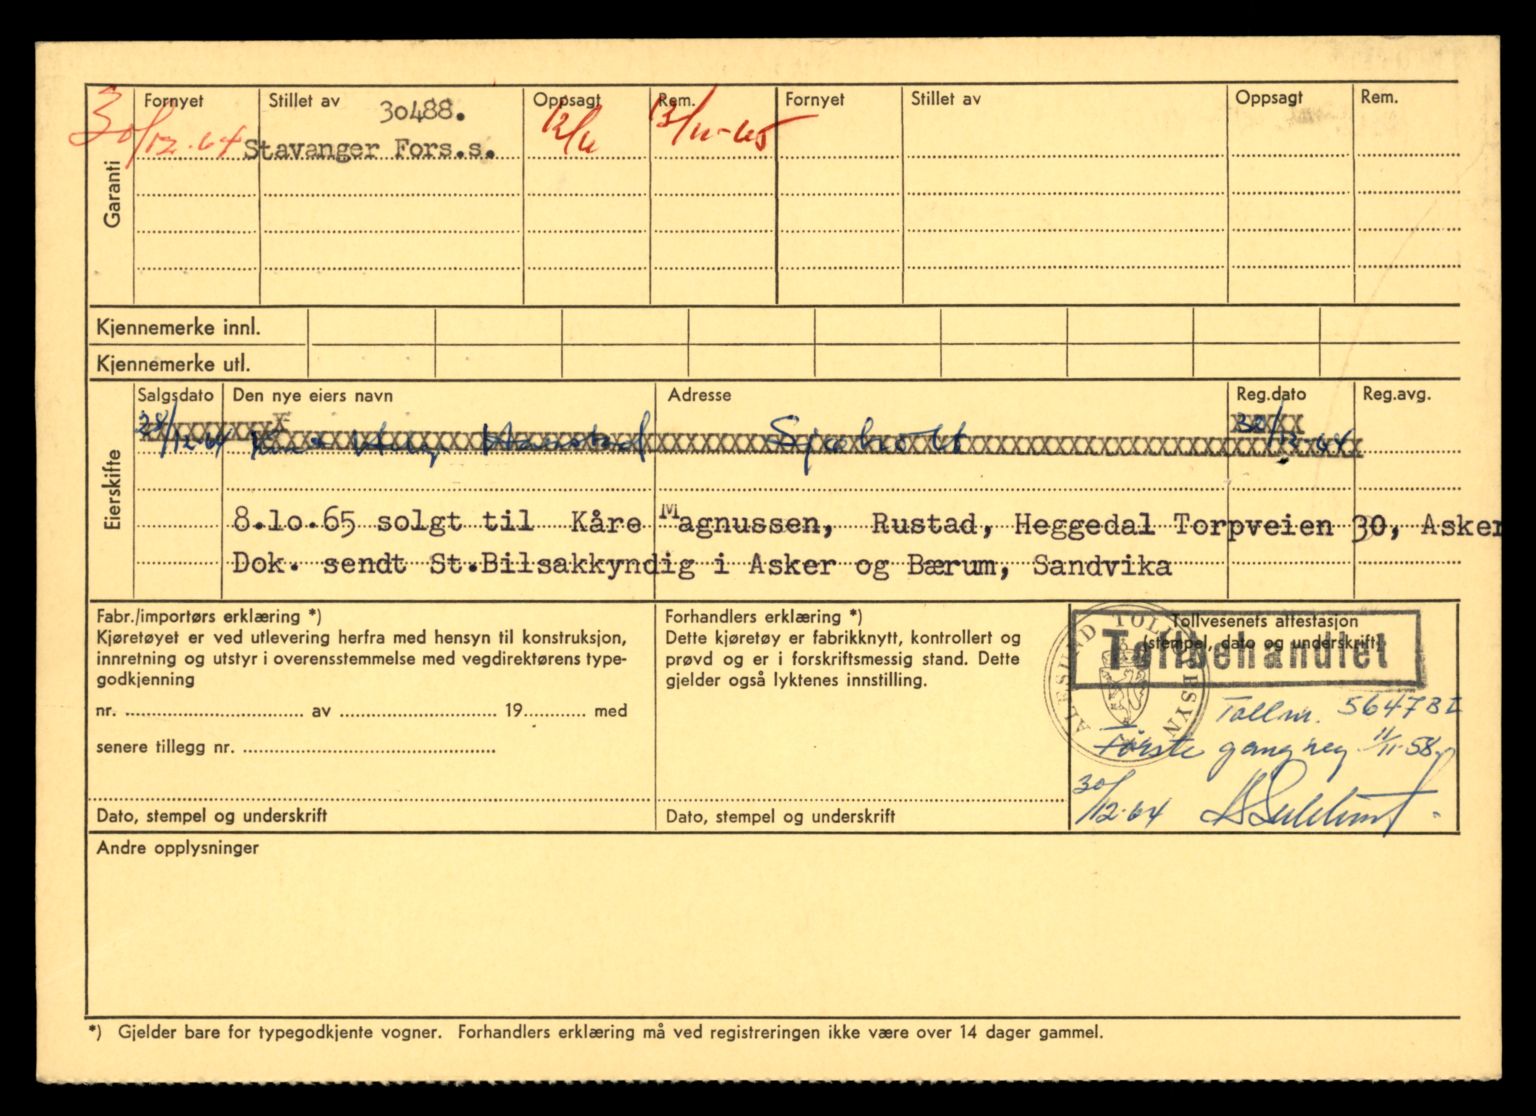 Garanti
Fornyet Stillet av Oppsagt Rem. Fornyet Stillet av Oppsagt Rem.
30488.
30/12-64 Stavanger Fors.s. 12/11 13/11-65
Kjennemerke innl.
Kjennemerke utl.
Eierskifte
Salgsdato Den nye eiers navn Adresse Reg.dato Reg.avg.
28/12-64 Sjøholt 30/12-64
8.10.65 solgt til Kåre Magnussen, Rustad, Heggedal Torpveien 30, Asker
Dok. sendt St.Bilsakkyndig i Asker og Bærum, Sandvika
Fabr./importørs erklæring *)
Kjøretøyet er ved utlevering herfra med hensyn til konstruksjon,
innretning og utstyr i overensstemmelse med vegdirektørens type-
godkjenning
nr. av 19 med
senere tillegg nr.
Dato, stempel og underskrift
Forhandlers erklæring *)
Dette kjøretøy er fabrikknytt, kontrollert og
prøvd og er i forskriftsmessig stand. Dette
gjelder også lyktenes innstilling.
Dato, stempel og underskrift
Tollvesenets attestasjon
(stempel, dato og underskrift)
Tollbehandlet
ÅLESUND TOLLOPPSYN
Tollnr. 56473 I
Første gang reg 11/11-58
30/12-64
Andre opplysninger
*) Gjelder bare for typegodkjente vogner. Forhandlers erklæring må ved registreringen ikke være over 14 dager gammel.